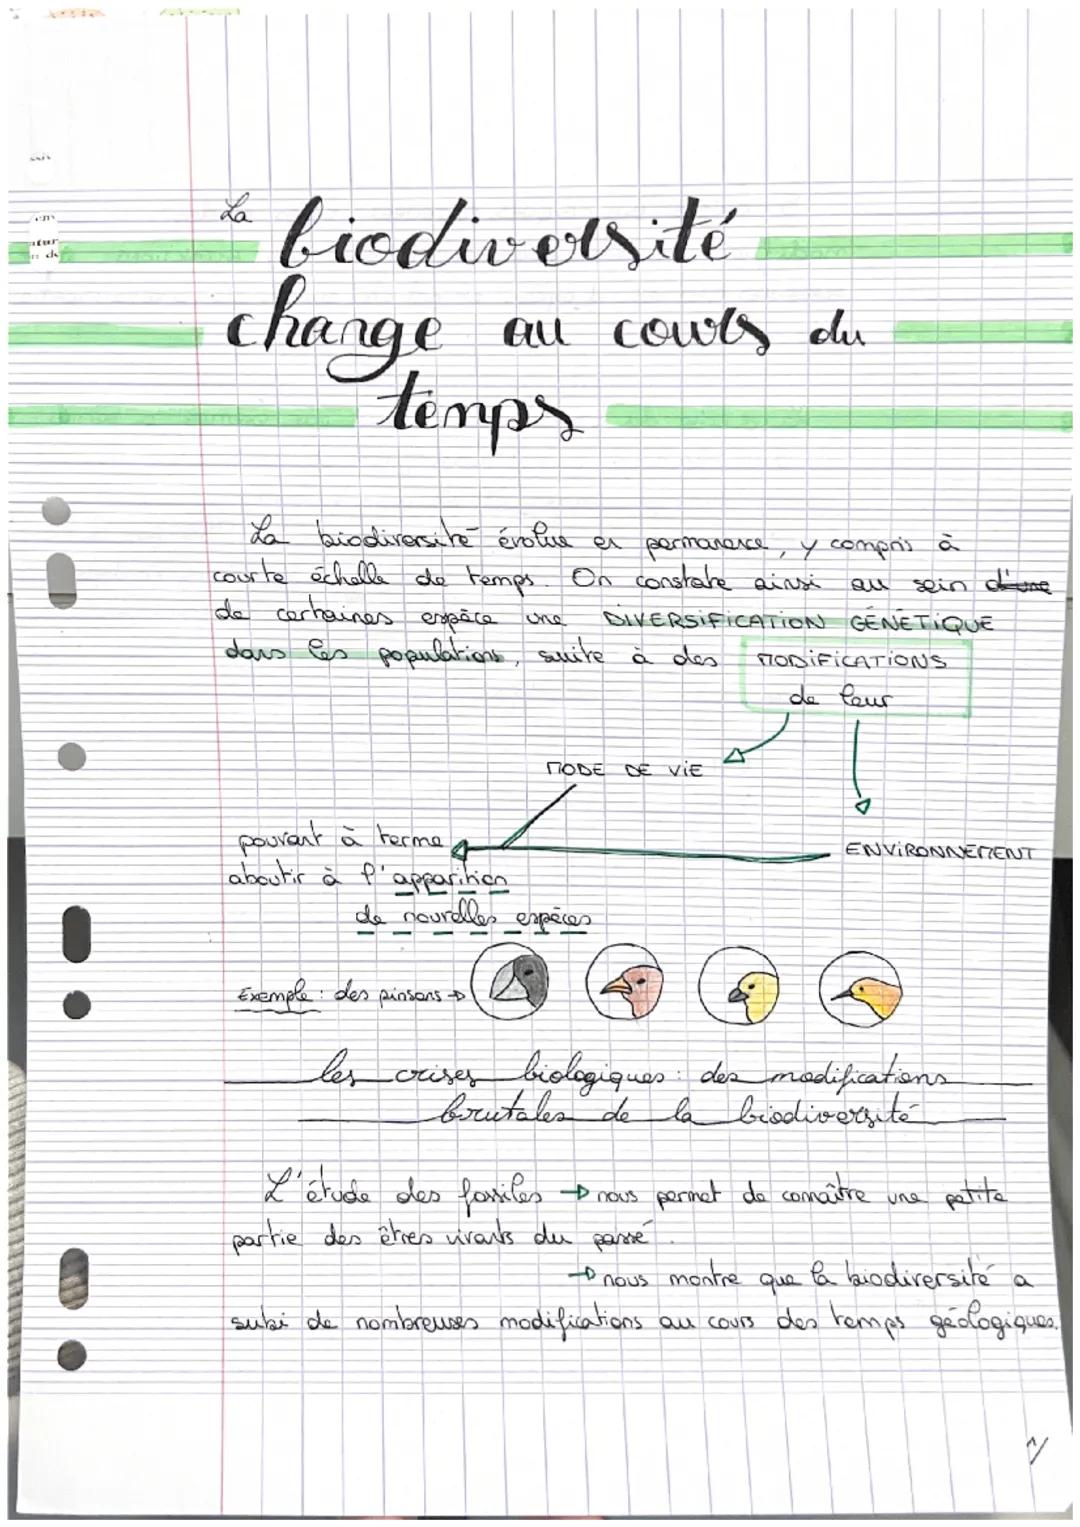 La biodiversité
change au cours du
temps
La biodiversité évolue en permanence, y compris à
courte échelle de temps. On constate ainsi au sein d'une
de certaines espèce une DIVERSIFICATION GÉNÉTIQUE
dans les populations, suite à des MODIFICATIONS
de leur
MODE DE VIE
ENVIRONNEMENT
pouvant à terme
aboutir à l'apparition
de nouvelles espèces
Exemple : des pinsons →
les crises biologiques : des modifications
brutales de la biodiversité
L'étude des fossiles → nous permet de connaître une petite
partie des êtres vivants du passé.
→ nous montre que la biodiversité a
subi de nombreuses modifications au cours des temps géologiques.
1/